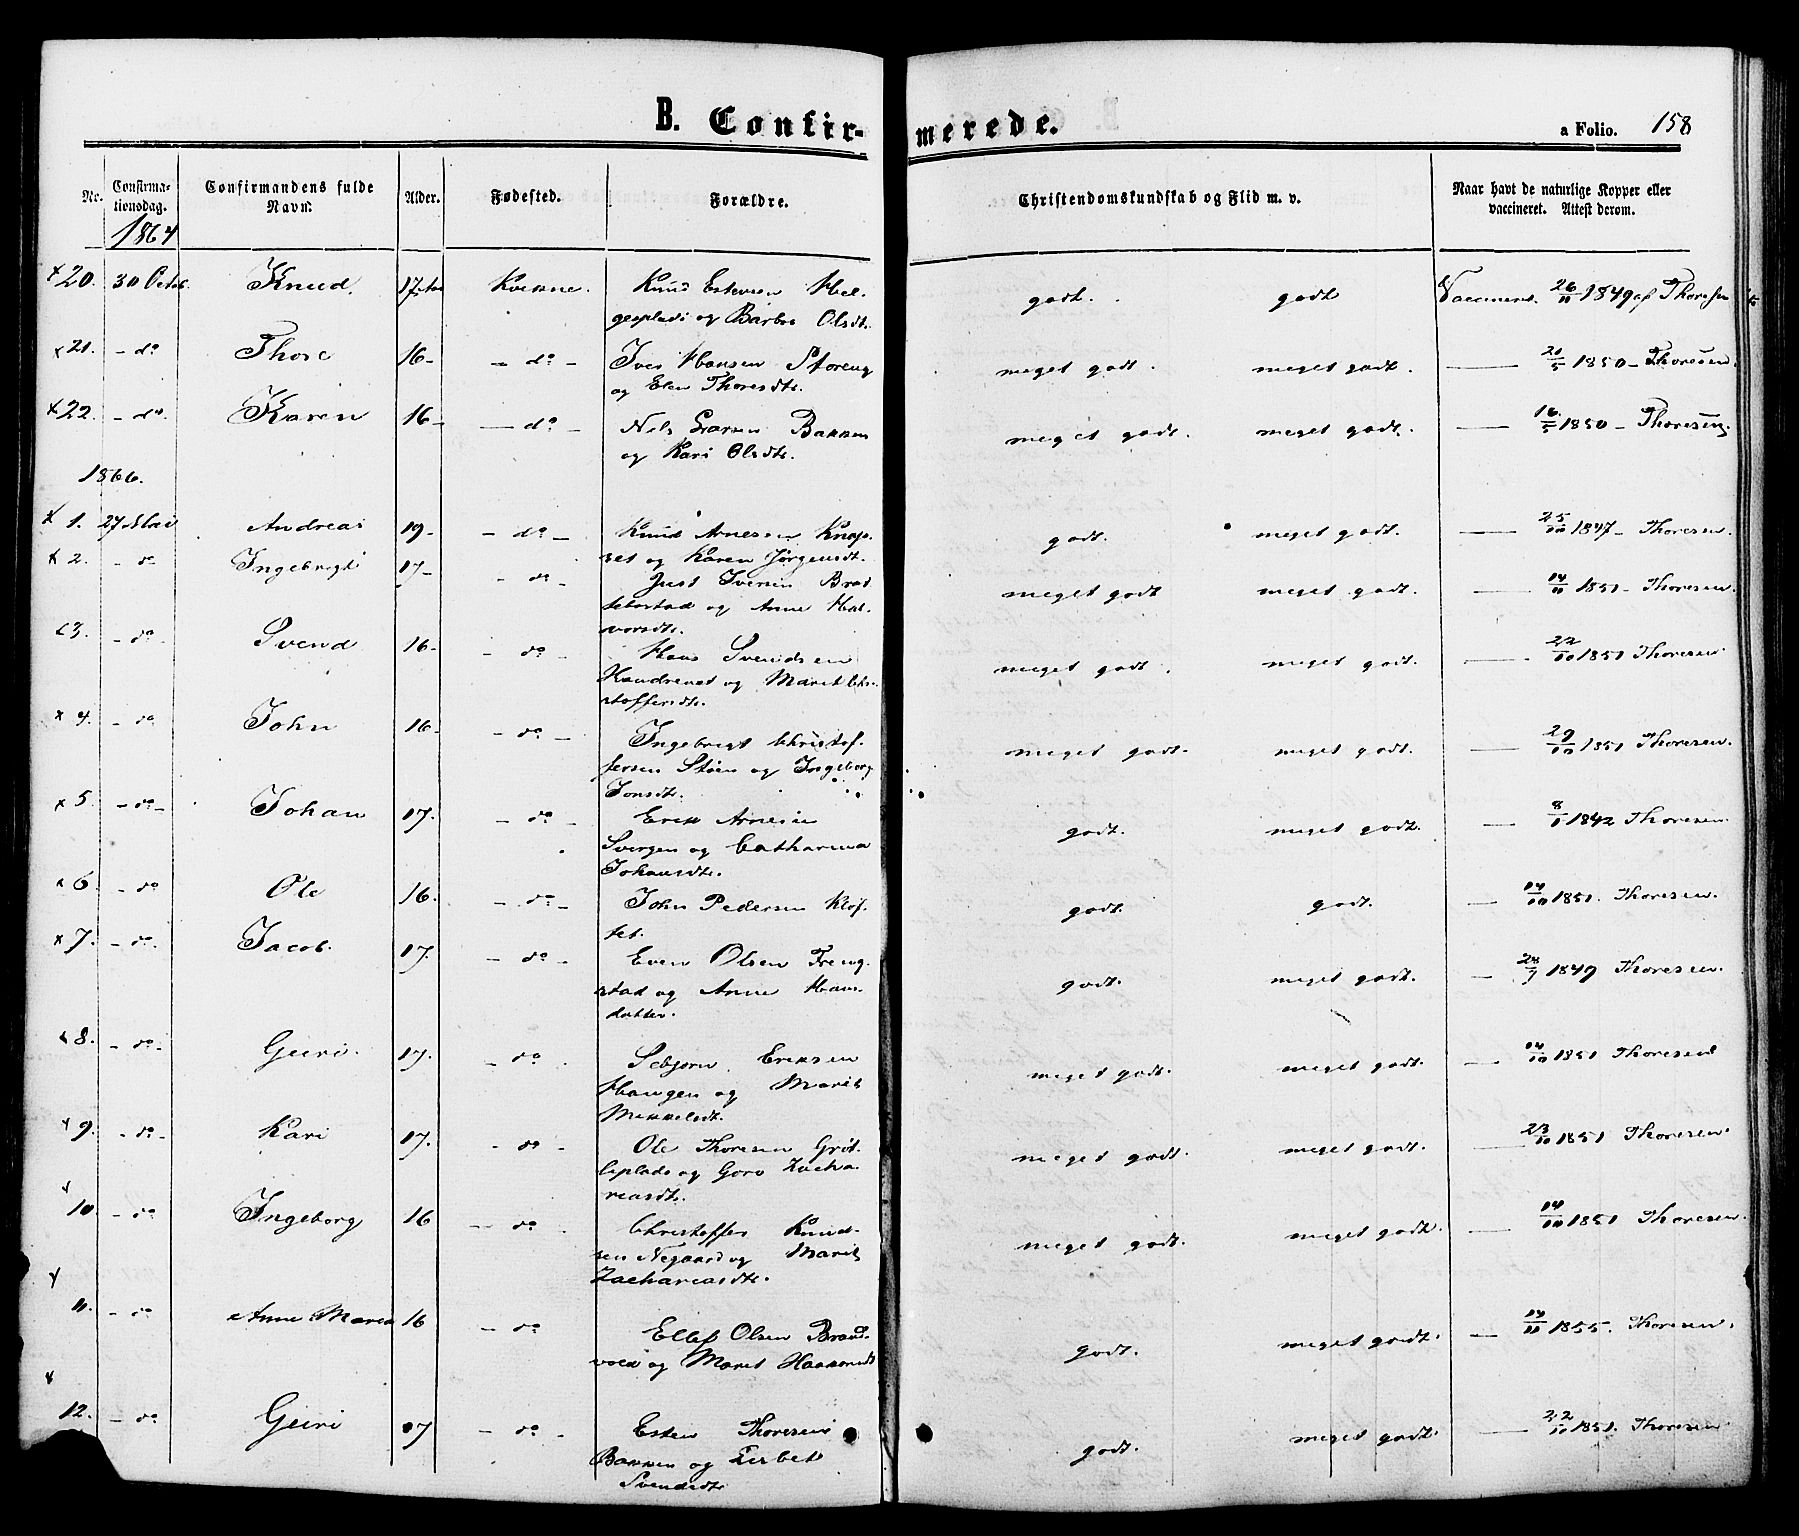 B. Confirmerede.
a Folio. 158
Nr. Confirmationsdag. Confirmandens fulde Navn. Alder. Fødested. Forældre. Christendomskundskab og Flid m. v. Naar havt de naturlige Kopper eller vaccineret. Attest derom.
1864
20. 30 Octob. Knud 17 Kvikne. Knud Estensen Hel-
gesplads og Barbro Olsdt. godt. godt 26/11 1849 af Thoresen
21. - do Thore 16- - do - Iver Hansen Storeng
og Elen Thoresdt. meget godt. meget godt. 21/5 1850 - Thoresen.
22. - do. Karen 16- - do - Nils Larsen Bakken
og Kari Olsdt. meget godt. meget godt. 16/5 1850 - Thoresen.
1866.
1. 27 Mai Andreas 19- - do - Knud Arnesen
og Karen Jørgensdt. godt. meget godt. 25/10 1847 - Thoresen.
2. - do Ingebrigt 17- - do - Just Iversen
og Anne Hal-
vorsdt. meget godt meget godt. 14/11 1851 - Thoresen.
3. - do - Svend 16- - do - Hans Svendsen
og Marit Chri-
stoffersdt. meget godt. meget godt. 22/10 1851 Thoresen.
4. - do John 16- - do - Ingebrigt Christof-
fersen Støen og Ingeborg
Jonsdt. meget godt. meget godt. 29/10 1851 Thoresen.
5. - do - Johan 17. - do - Erik Arnesen
og Catharina
Johansdt. godt. meget godt. 1842 Thoresen
6. - do Ole 16. - do - John Pedersen Kløf-
tet. godt. godt. 14/10 1851. Thoresen.
7. - do. Jacob. 17. - do - Even Olsen Freng-
stad og Anne Hans-
datter. godt. meget godt. 28/7 1849 Thoresen.
8. - do - Guri. 17. - do Sebjørn Eriksen
Haugen og Marit
Mikkelsdt. meget godt. meget godt. 14/10 1851 Thoresen
9. - do - Kari 17. - do - Ole Thoresen Grøt-
liplads og Goro Zacha-
riasdt. meget godt. meget godt. 23/10 1851 Thoresen.
10. - do Ingeborg 16 - do - Christoffer Knud-
sen Negaard og Marit
Zachariasdt. meget godt. meget godt. 14/10 1851 Thoresen.
11. - do Anne Maria 16 - do Ellef Olsen Brand-
vold og Marit Haakonsdt godt. meget godt. 14/11 1855. Thoresen.
12. - do Guri 17 - do Esten Thoresen
Bakken og Lisbet
Svendsdt godt. meget godt. 22/10 1851. Thoresen